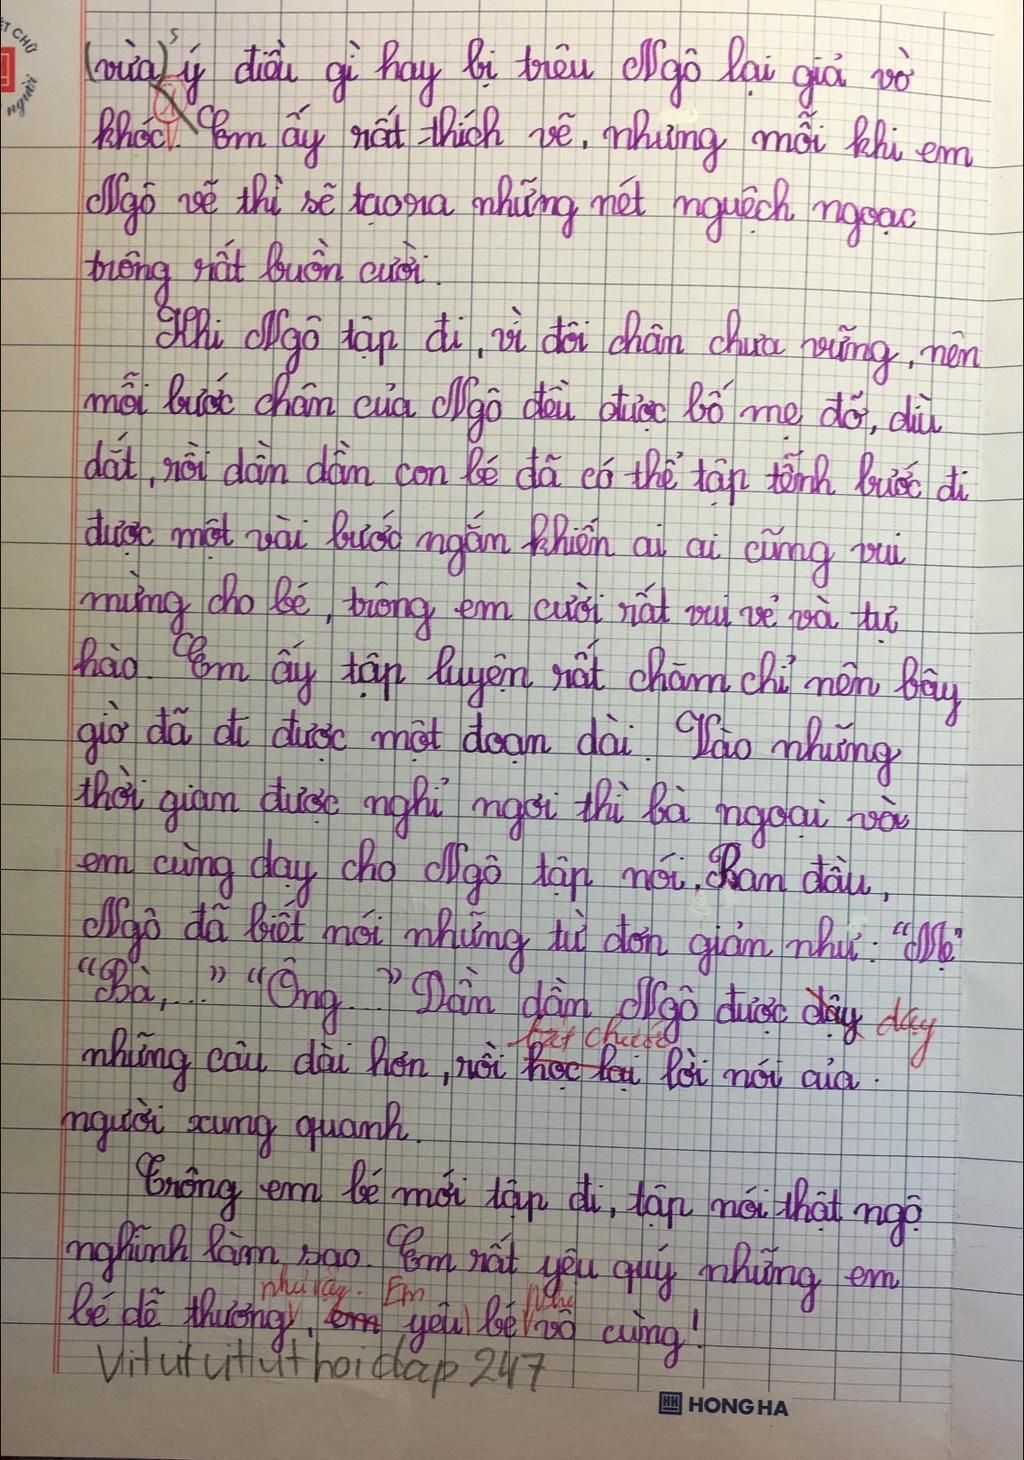 ẾT CHỮ
người
s
(vừa) ý điều gì hay bị trêu Ngô lại giả vờ
khóc. Em ấy rất thích vẽ, nhưng mỗi khi em
Ngô vẽ thì sẽ tạo ra những nét nguệch ngoạc
trông rất buồn cười.
Khi Ngô tập đi, vì đôi chân chưa vững, nên
mỗi bước chân của Ngô đều được bố mẹ đỡ, dìu
dắt, rồi dần dần con bé đã có thể tập tễnh bước đi
được một vài bước ngắn khiến ai ai cũng vui
mừng cho bé, trông em cười rất vui vẻ và tự
hào. Em ấy tập luyện rất chăm chỉ nên bây
giờ đã đi được một đoạn dài. Vào những
thời gian được nghỉ ngơi thì bà ngoại và
em cùng dạy cho Ngô tập nói. Ban đầu,
Ngô đã biết nói những từ đơn giản như: "Mẹ"
"Bà,..." "Ông..." Dần dần Ngô được dậy dạy
bắt chước
những câu dài hơn, rồi học lại lời nói của
người xung quanh.
Trông em bé mới tập đi, tập nói thật ngộ
nghĩnh làm sao. Em rất yêu quý những em
như vậy. Em Ngô
bé dễ thương, em yêu bé vô cùng!
Vitutuituthoidap247
HH HONG HA